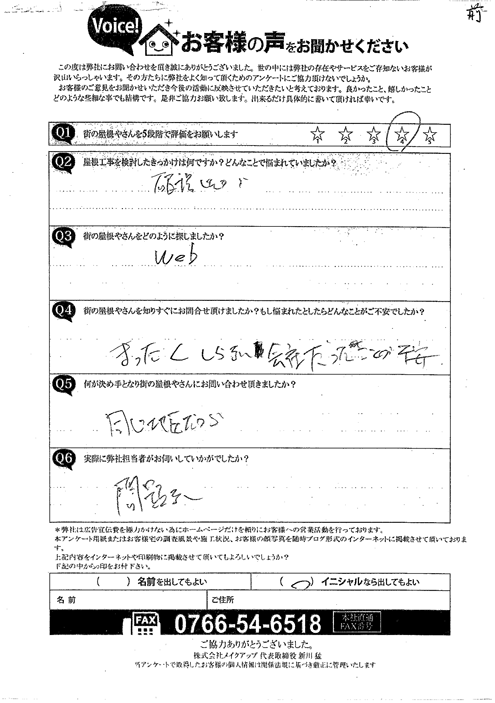 前
Voice!
お客様の声をお聞かせください
この度は弊社にお問い合わせを頂き誠にありがとうございます。世の中には弊社の存在やサービスをご存知ないお客様が
沢山いらっしゃいます。その方たちに弊社をよく知って頂くためのアンケートにご協力頂けないでしょうか。
お客様のご意見をお聞かせいただき今後の活動に反映させていただきたいと考えております。良かったこと、嬉しかったこと
どのような些細な事でも結構です。是非ご協力お願い致します。出来るだけ具体的に書いて頂ければ幸いです。
Q1 街の屋根やさんを5段階で評価をお願いします
1 2 3 4 5
Q2 屋根工事を検討したきっかけは何ですか?どんなことで悩まれていましたか?
Q3 街の屋根やさんをどのように探しましたか?
Web
Q4 街の屋根やさんを知りすぐにお問合せ頂けましたか?もし悩まれたとしたらどんなことがご不安でしたか?
まったくしらない会社だったことの不安
Q5 何が決め手となり街の屋根やさんにお問い合わせ頂きましたか?
同じ地区だから
Q6 実際に弊社担当者がお伺いしていかがでしたか?
問題ない
*弊社は広告宣伝費を極力かけない為にホームページだけを頼りにお客様への営業活動を行っております。
本アンケート用紙またはお客様宅の調査風景や施工状況、お客様の顔写真を随時ブログ形式のインターネットに掲載させて頂いておりま
す。
上記内容をインターネットや印刷物に掲載させて頂いてもよろしいでしょうか?
下記の中から○印をお付け下さい。
( ) 名前を出してもよい (○) イニシャルなら出してもよい
名前 ご住所
FAX 0766-54-6518 本社直通 FAX番号
ご協力ありがとうございました。
株式会社メイクアップ 代表取締役 新川 猛
当アンケートで取得したお客様の個人情報は関係法規に基づき厳正に管理いたします